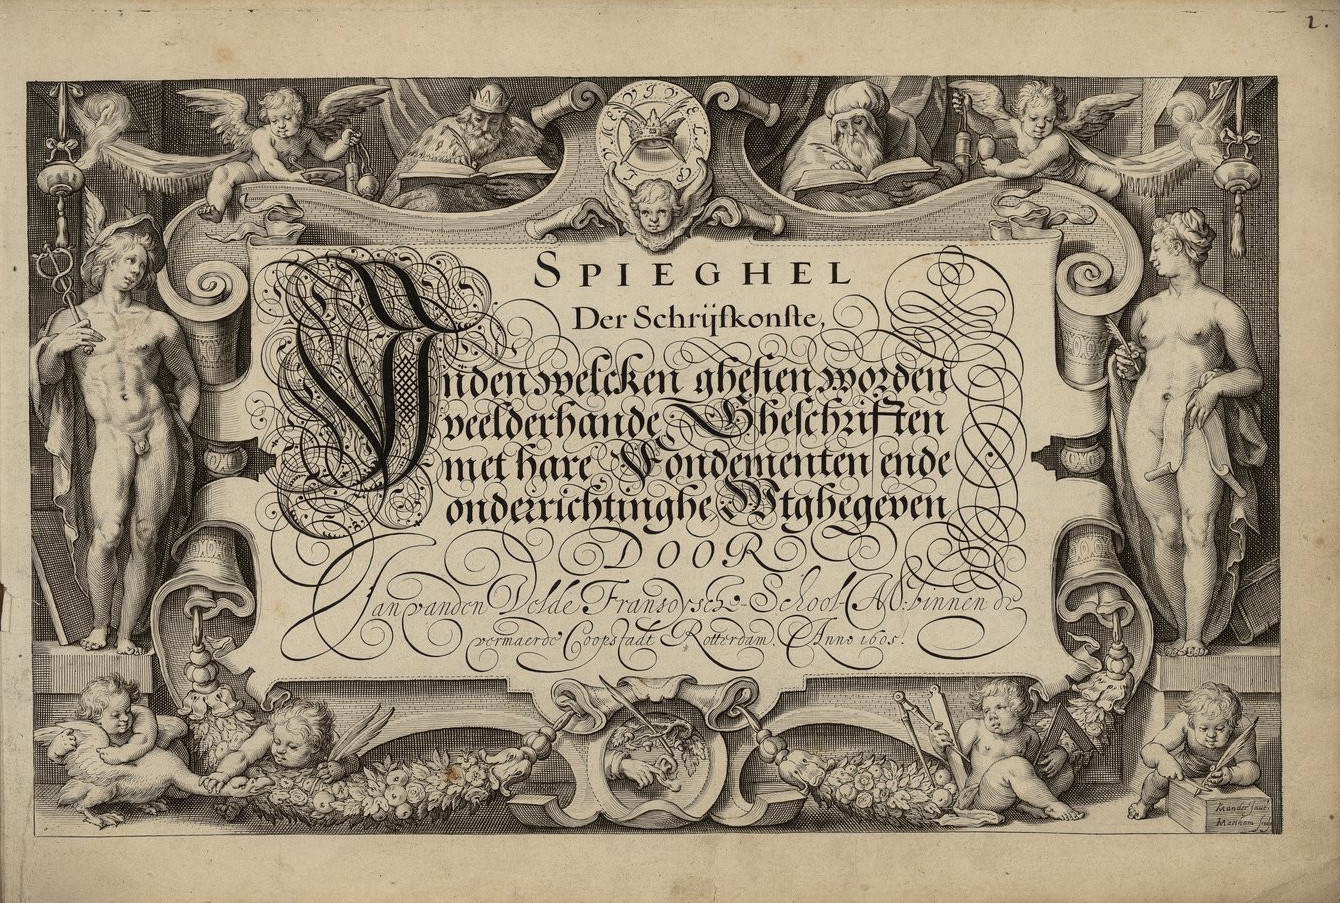 2.
VIVE LA PLVME
SPIEGHEL
Der Schrijfkonſte,
Inden welcken gheſien worden
veelderhande Gheſchriften
met hare Fondementen ende
onderrichtinghe Wtghegeven
DOOR
Jan vanden Velde Fransoysche-School-M. binnen de
vermaerde Coopstadt Rotterdam. Anno 1605.
Mander
Matham